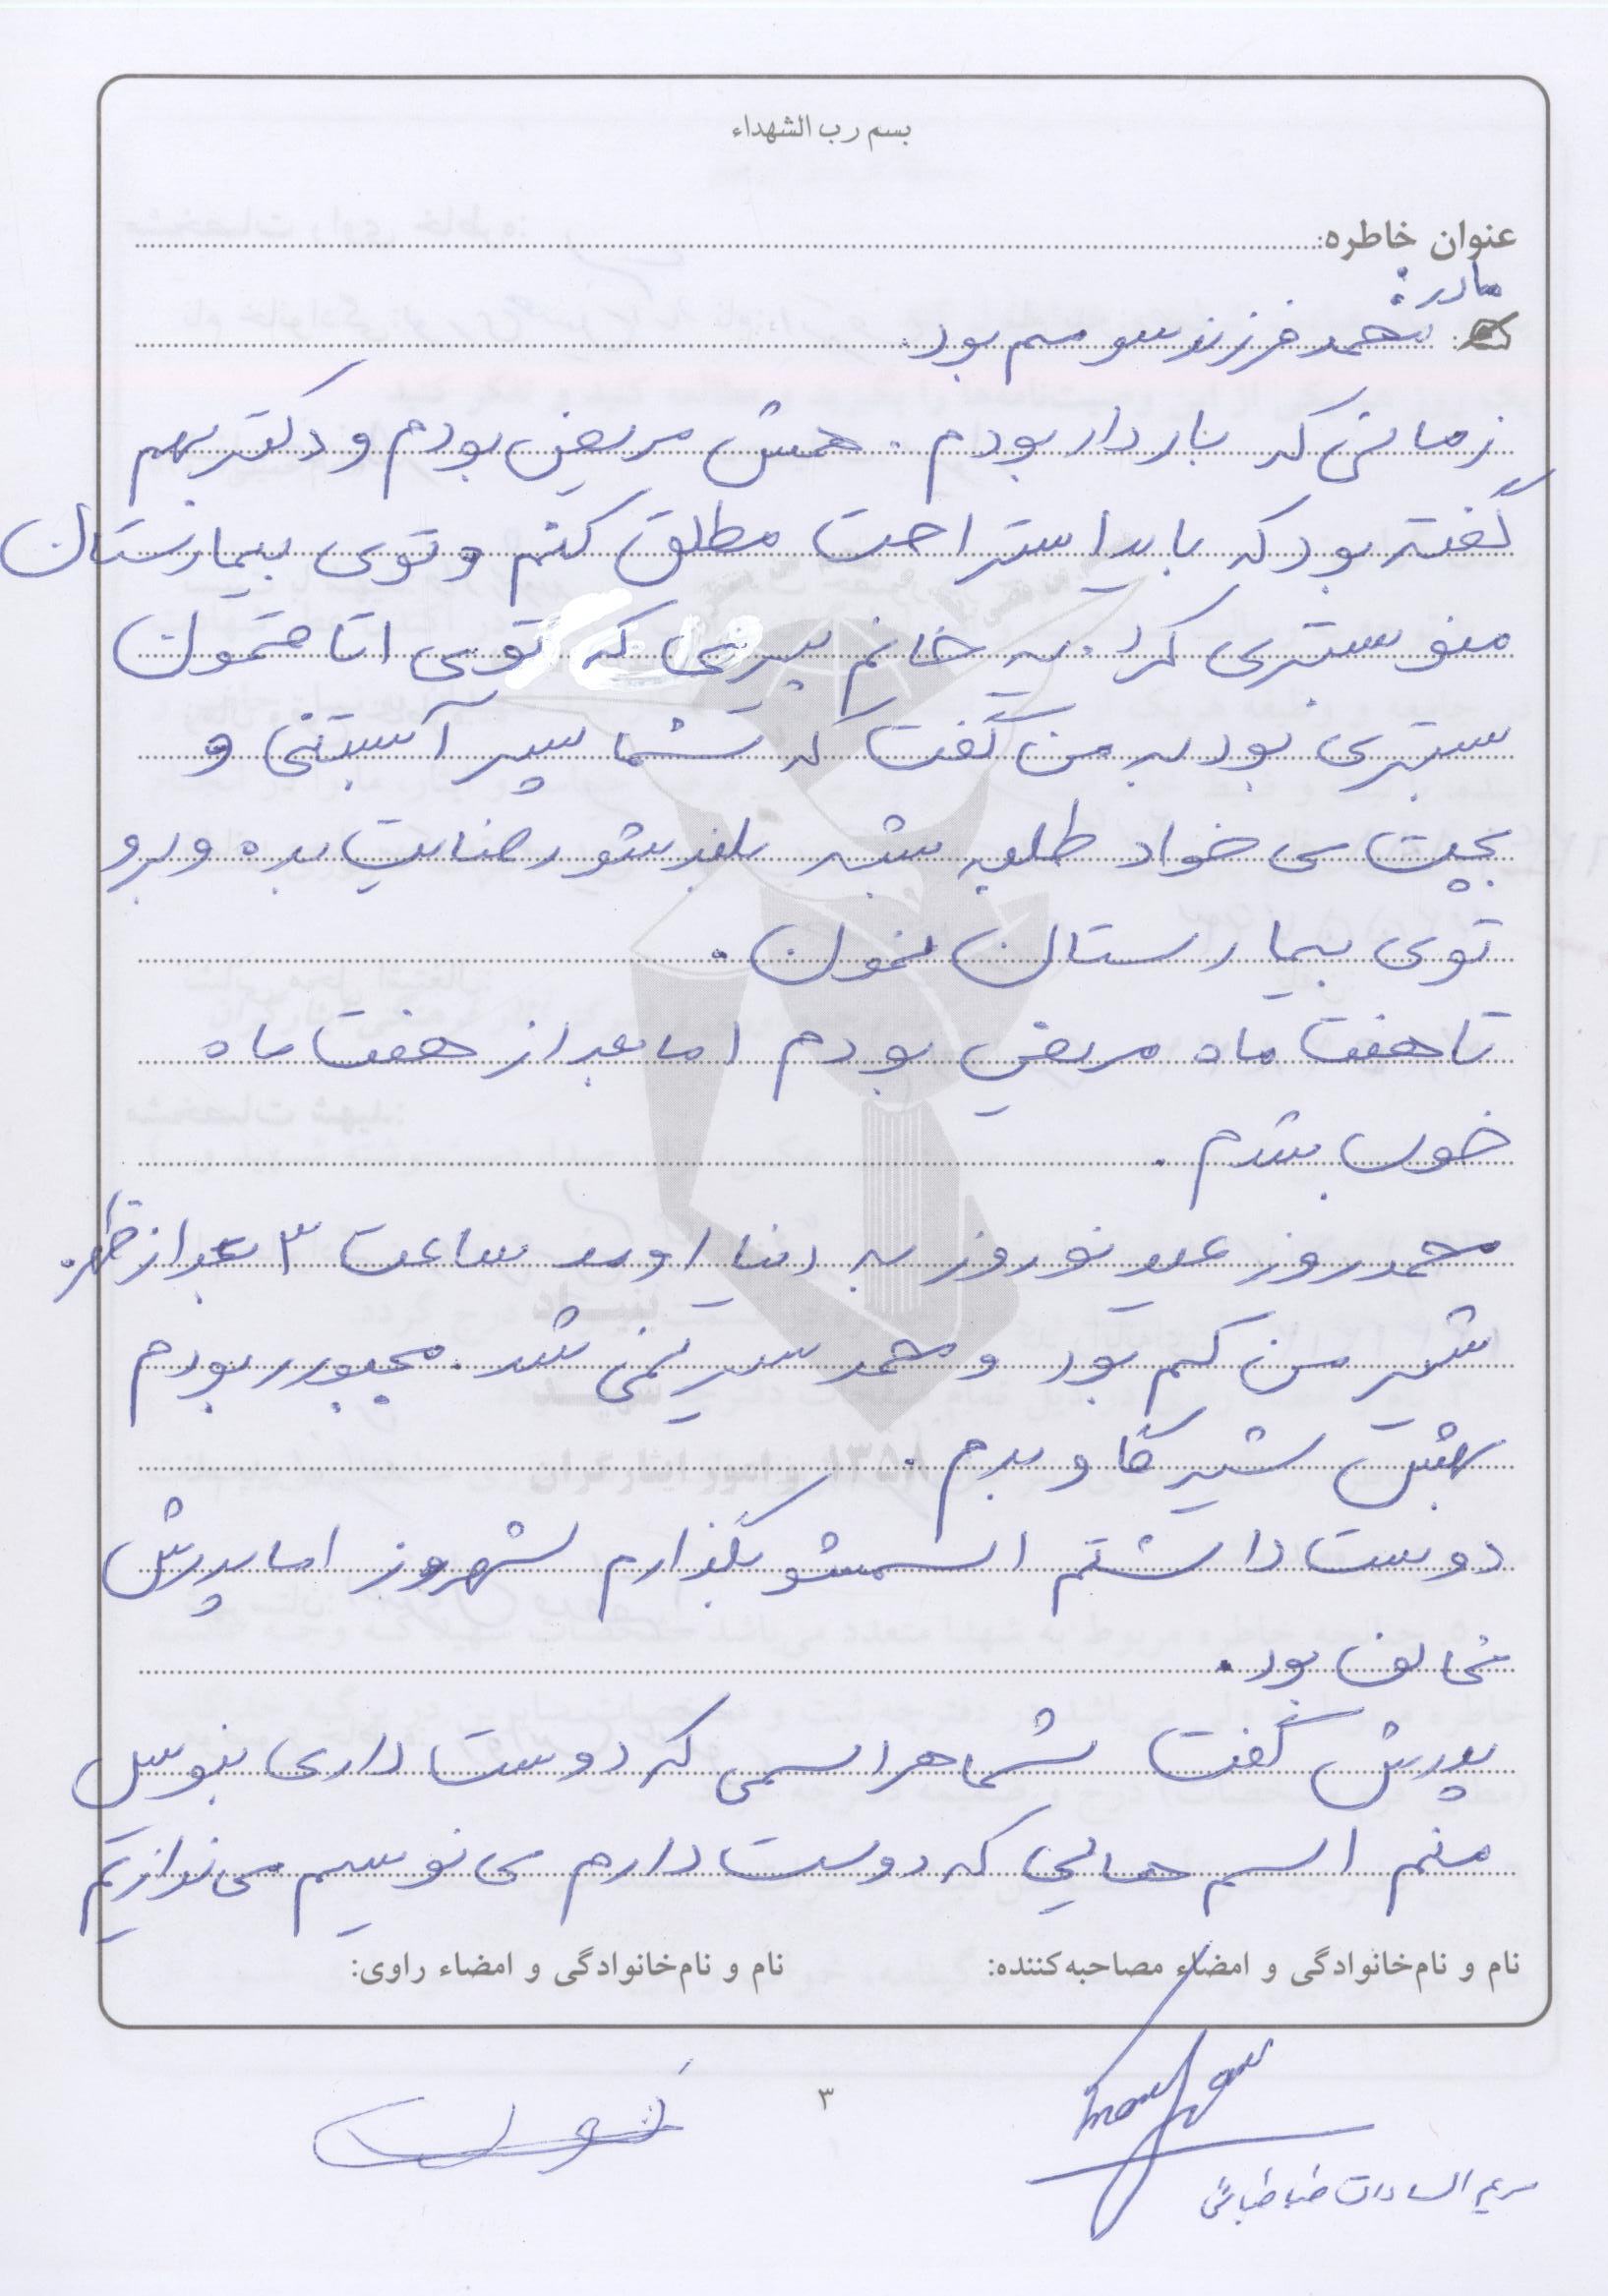 بسم رب الشهداء
عنوان خاطره:
مادر:
محمد فرزند سومم بود.
زمانی که باردار بودم. همش مریض بودم و دکتر بهم
گفته بود که باید استراحت مطلق کنم و توی بیمارستان
منو بستری کرد. یه خانم پیری که توی اتاقمون
بستری بود به من گفت که شما پسر آبستنی و
بچت می خواد طلبه بشه بلند شو رضایت بده و برو
توی بیمارستان نمون.
تا هفت ماه مریض بودم اما بعد از هفت ماه
خوب شدم.
محمد روز عید نوروز به دنیا اومد ساعت ۳ بعد از ظهر.
شیر من کم بود و محمد سیر نمی شد. مجبور بودم
بهش شیر گاو بدم.
دوست داشتم اسمشو بگذارم شهروز اما پدرش
مخالف بود.
پدرش گفت شما هر اسمی که دوست داری بنویس
منم اسم هایی که دوست دارم می نویسم می ندازیم
نام و نام‌خانوادگی و امضاء مصاحبه‌کننده:
نام و نام‌خانوادگی و امضاء راوی:
۳
مریم السادات طباطبائی